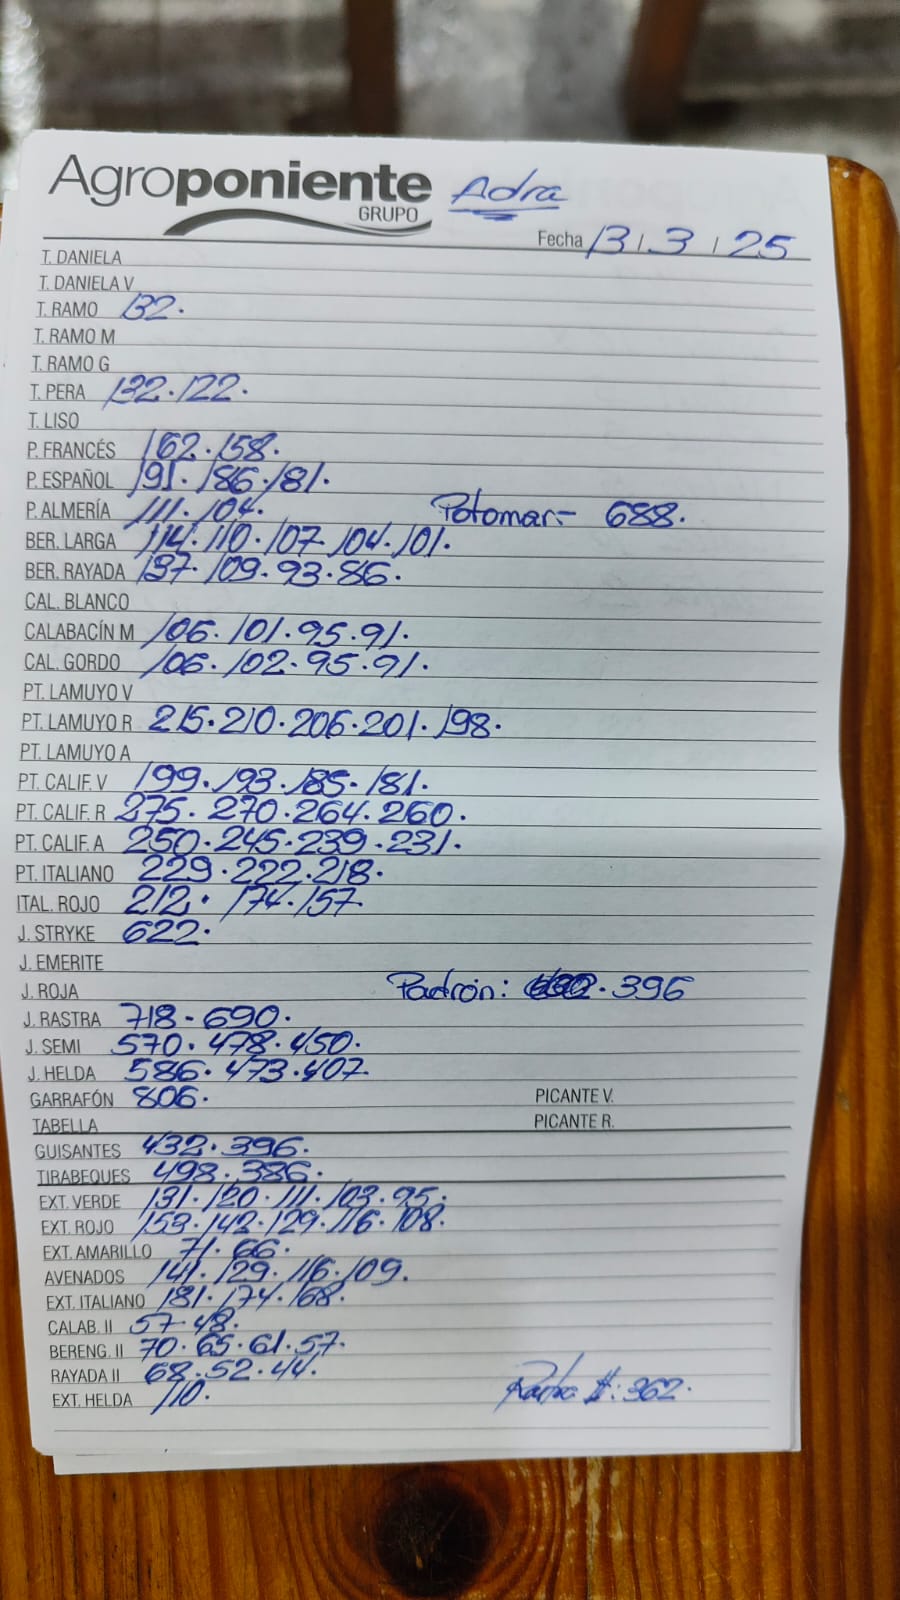 Agroponiente Adra
GRUPO
Fecha 13/3/25
T. DANIELA
T. DANIELA V
T. RAMO 132.
T. RAMO M
T. RAMO G
T. PERA 132.122.
T. LISO
P. FRANCÉS 162.158.
P. ESPAÑOL 191.186.181.
P. ALMERÍA 111.104. Potomar- 688.
BER. LARGA 114.110.107.104.101.
BER. RAYADA 137.109.93.86.
CAL. BLANCO
CALABACÍN M 106.101.95.91.
CAL. GORDO 106.102.95.91.
PT. LAMUYO V
PT. LAMUYO R 215.210.206.201.198.
PT. LAMUYO A
PT. CALIF. V 199.193.185.181.
PT. CALIF. R 275.270.264.260.
PT. CALIF. A 250.245.239.231.
PT. ITALIANO 229.222.218.
ITAL. ROJO 212.174.157.
J. STRYKE 622.
J. EMERITE
J. ROJA Padrón: .396
J. RASTRA 718-690.
J. SEMI 570.478.450.
J. HELDA 586.473.407.
GARRAFÓN 806. PICANTE V.
TABELLA PICANTE R.
GUISANTES 432.396.
TIRABEQUES 498.386.
EXT. VERDE 131.120.111.103.95.
EXT. ROJO 153.142.129.116.108.
EXT. AMARILLO 71.66.
AVENADOS 141.129.116.109.
EXT. ITALIANO 181.174.168.
CALAB. II 57.48.
BERENG. II 70.65.61.57.
RAYADA II 68.52.44.
EXT. HELDA 110. : 362.